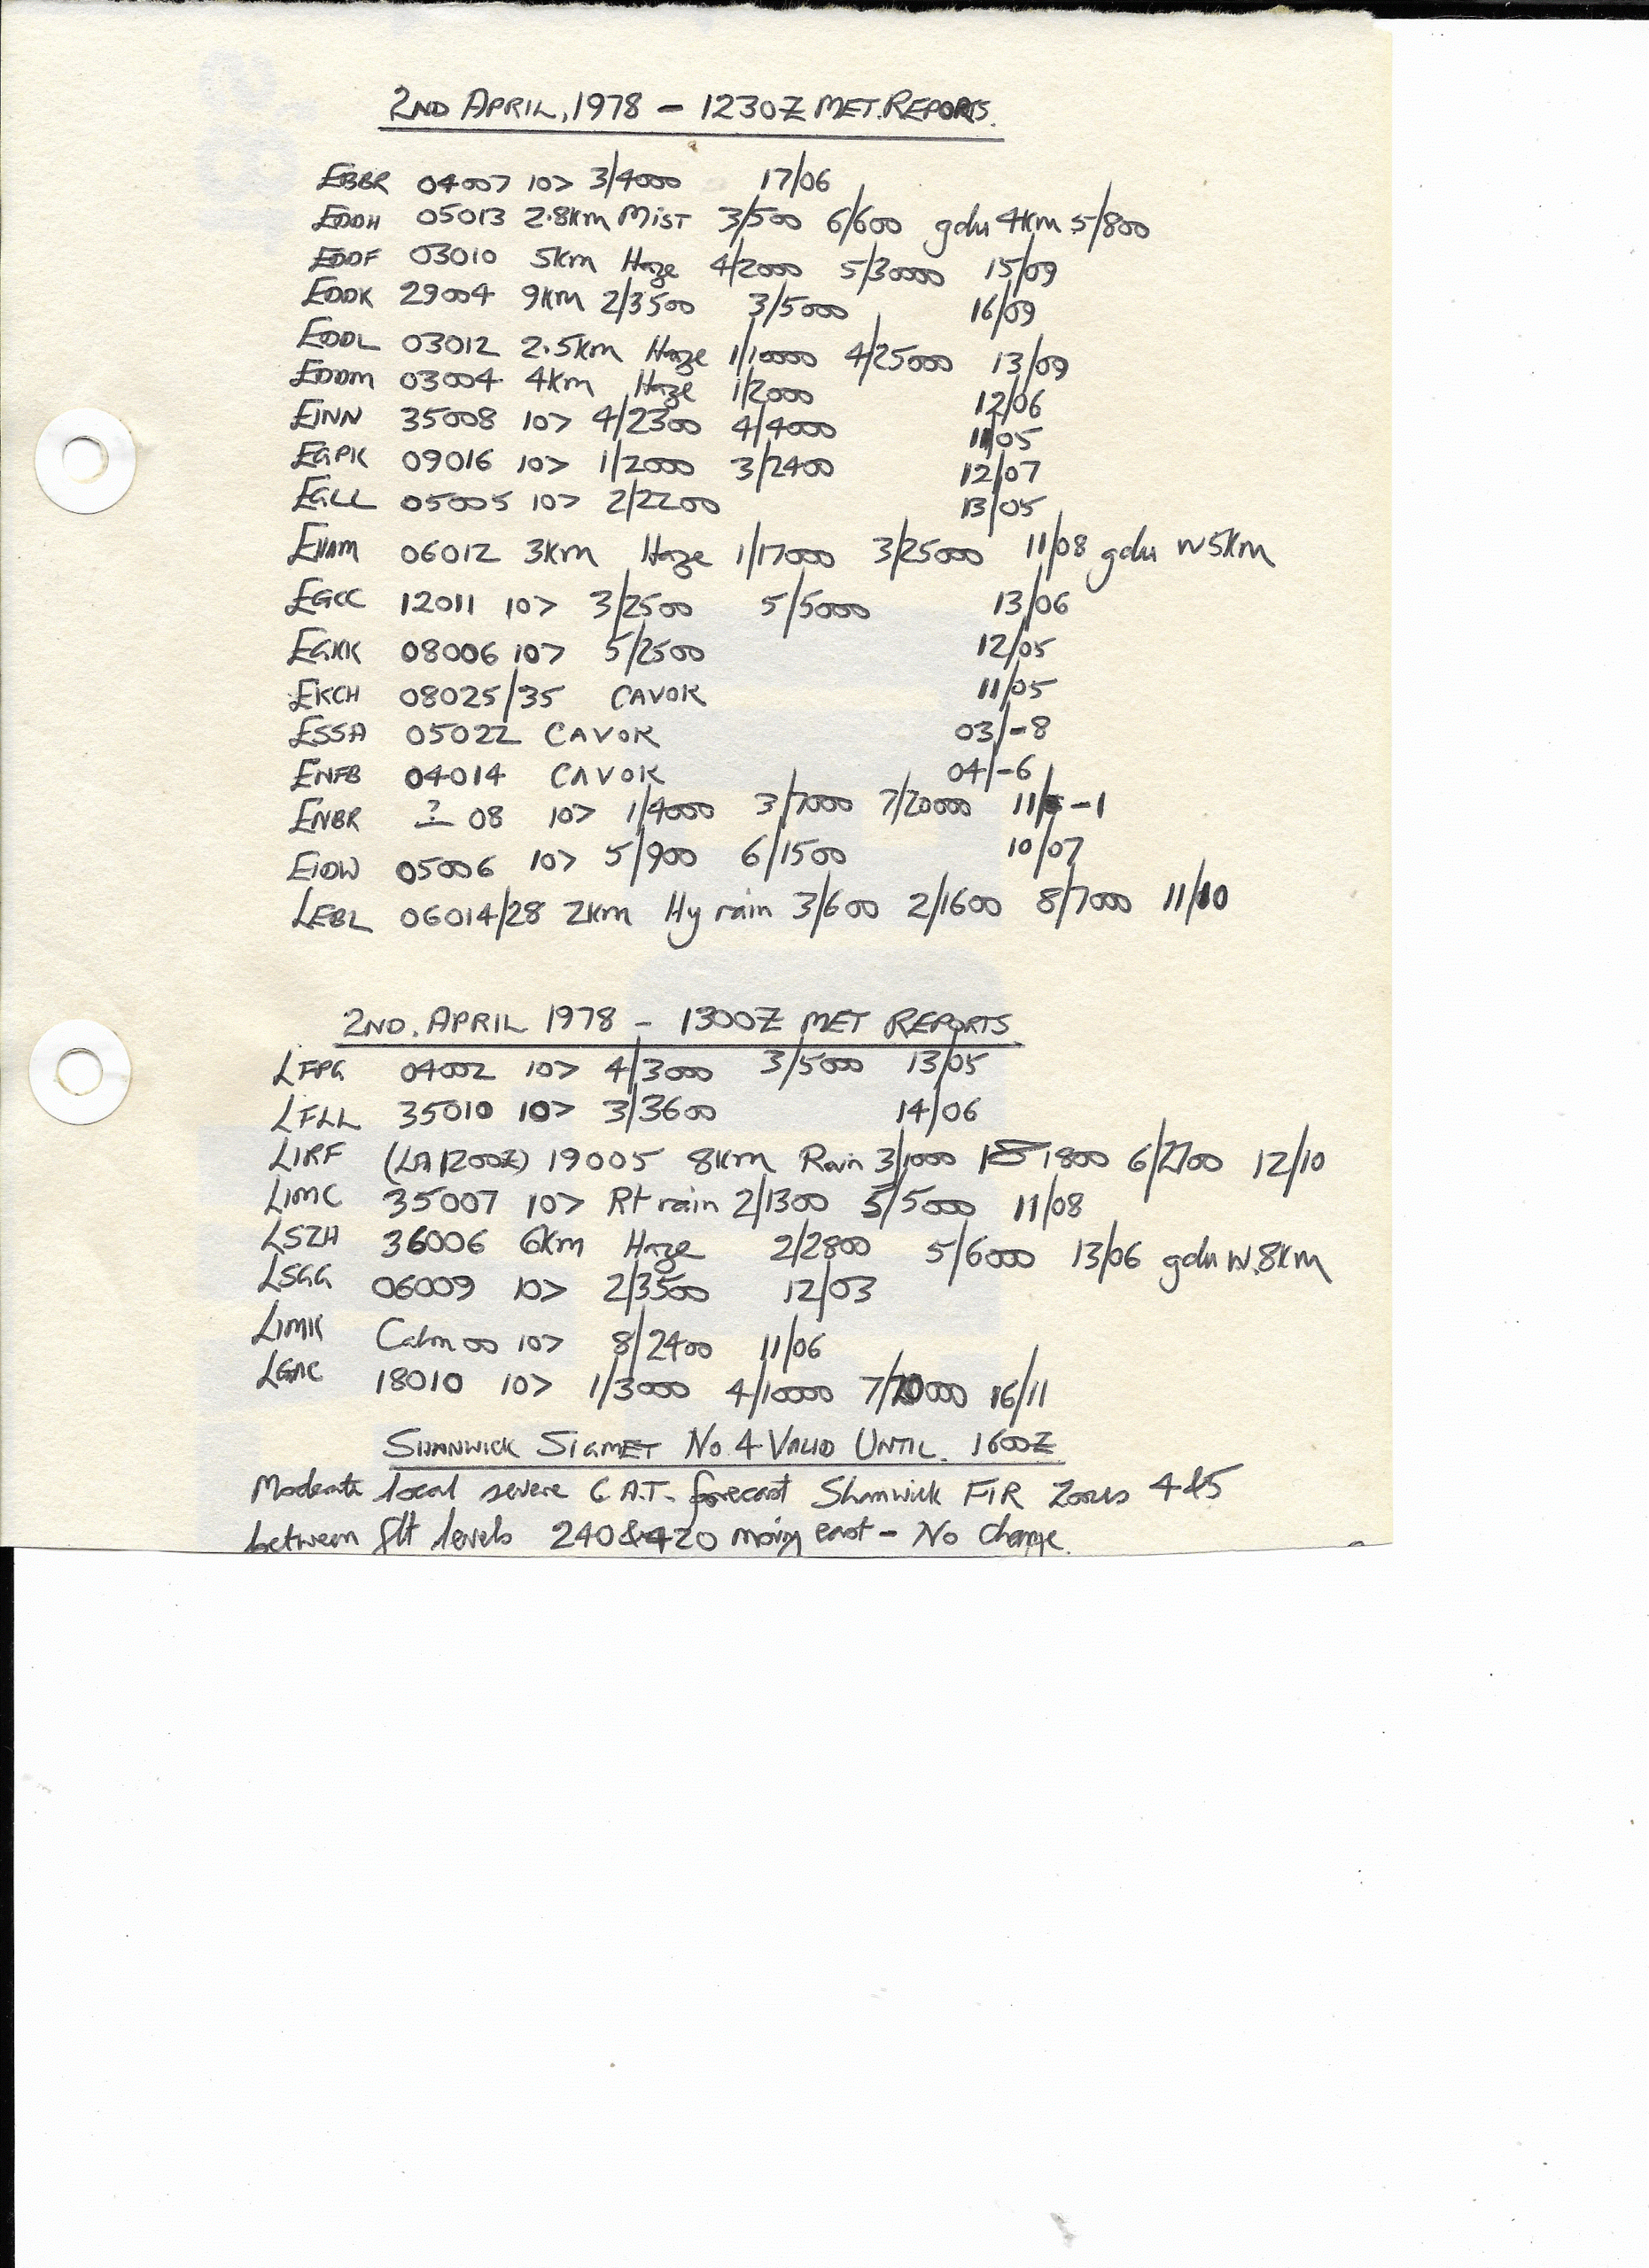 2ND APRIL, 1978 - 1230Z MET. REPORTS.
EBBR 04007 10> 3/4000 17/06
EDDH 05013 2.8km Mist 3/500 6/600 gdu 4km 5/800
EDDF 03010 5km Haze 4/2000 5/30000 15/09
EDDK 29004 9km 2/3500 3/5000 16/09
EDDL 03012 2.5km Haze 1/10000 4/25000 13/09
EDDM 03004 4km Haze 1/2000 12/06
EINN 35008 10> 4/2300 4/4000 11/05
EGPK 09016 10> 1/2000 3/2400 12/07
EGLL 05005 10> 2/2200 13/05
EHAM 06012 3km Haze 1/17000 3/25000 11/08 gdu W5km
EGCC 12011 10> 3/2500 5/5000 13/06
EGKK 08006 10> 5/2500 12/05
EKCH 08025/35 CAVOK 11/05
ESSA 05022 CAVOK 03/-8
ENFB 04014 CAVOK 04/-6
ENBR ? 08 10> 1/4000 3/7000 7/20000 11/-1
EIDW 05006 10> 5/900 6/1500 10/07
LEBL 06014/28 2km Hy rain 3/600 2/1600 8/7000 11/10
2ND. APRIL 1978 - 1300Z MET REPORTS
LFPG 04002 10> 4/3000 3/5000 13/05
LFLL 35010 10> 3/3600 14/06
LIRF (LA 1200Z) 19005 8km Rain 3/1000 1800 6/2700 12/10
LIMC 35007 10> Rt rain 2/1300 5/5000 11/08
LSZH 36006 6km Haze 2/2800 5/6000 13/06 gdu W.8km
LSGG 06009 10> 2/3500 12/03
LIMK Calm 00 10> 8/2400 11/06
LGAC 18010 10> 1/3000 4/10000 7/20000 16/11
SHANWICK SIGMET No. 4 VALID UNTIL. 1600Z
Moderate local severe C.A.T. forecast Shanwick FIR Zones 4&5
between flt levels 240&420 moving east - No change.